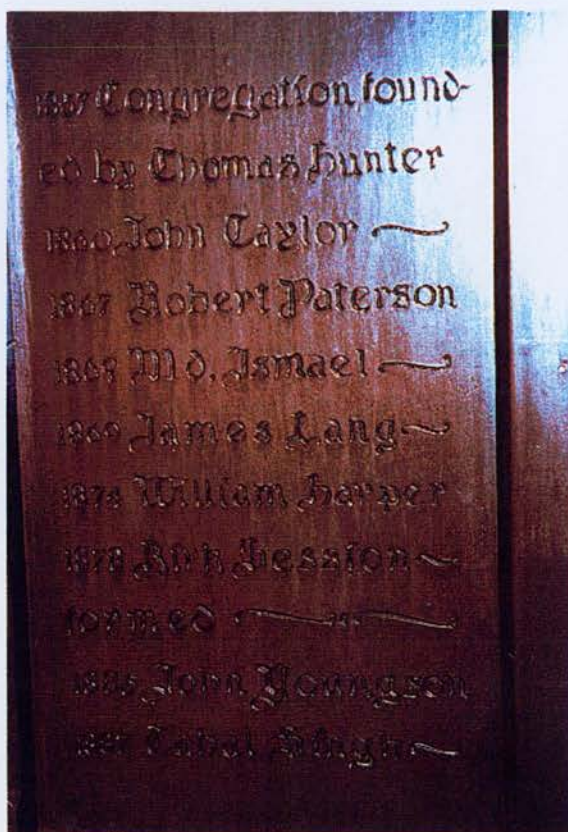 1857 Congregation found-
ed by Thomas Hunter
1860 John Taylor
1867 Robert Paterson
Md. Ismael
James Lang
William Harper
1878 Kirk Session
formed
1885 John Youngson
Singh